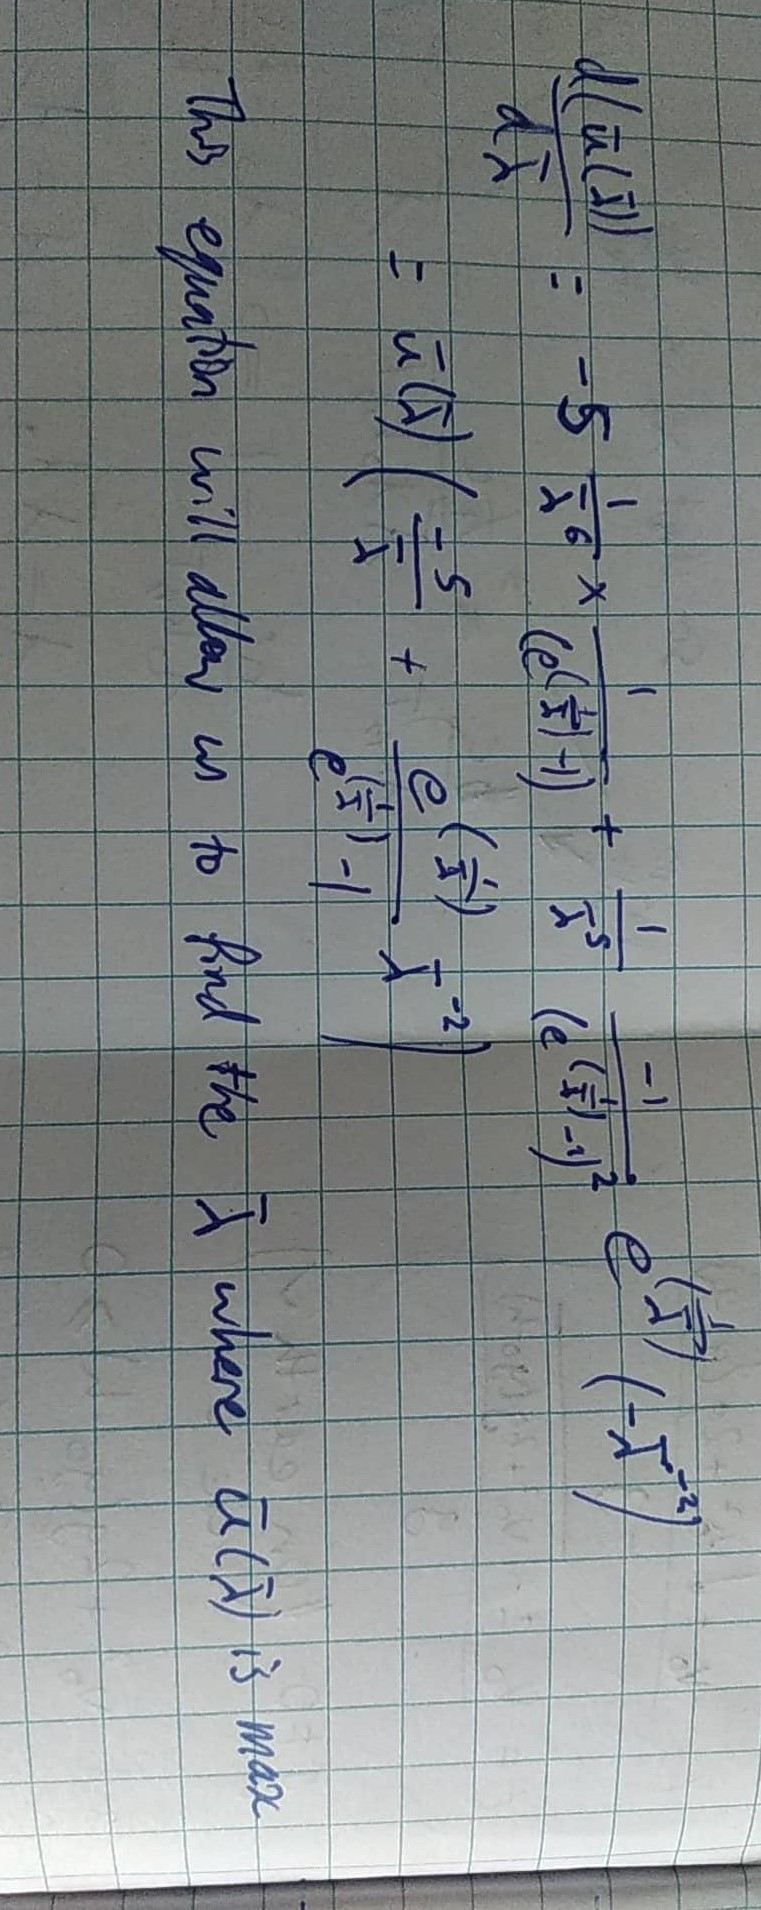 d(ū(λ̄))/dλ̄ = -5 1/λ̄⁶ × 1/(e^(1/λ̄) -1) + 1/λ̄⁵ -1/(e^(1/λ̄) -1)² · e^(1/λ̄) (-λ̄⁻²)
= ū(λ̄) ( -5/λ̄ + e^(1/λ̄)/(e^(1/λ̄) -1) · λ̄⁻² )
This equation will allow us to find the λ̄ where ū(λ̄) is max